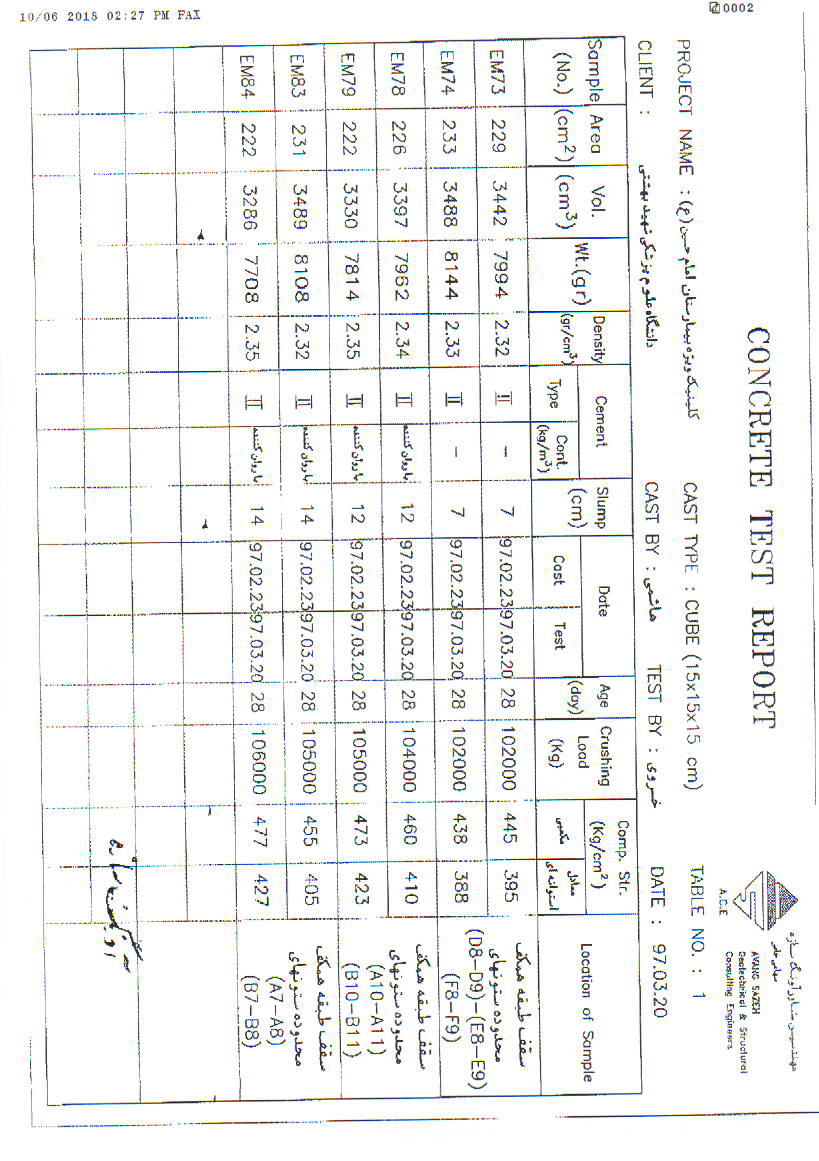 10/06 2018 02:27 PM FAX
0002
CONCRETE TEST REPORT
مهندسین مشاور آونگ سازه
سهامی خاص
AVANG SAZEH
Geotechnical & Structural
Consulting Engineers
A.C.E
PROJECT NAME : کلینیک ویژه بیمارستان امام حسین (ع) CAST TYPE : CUBE (15x15x15 cm) TABLE NO. : 1
CLIENT : دانشگاه علوم پزشکی شهید بهشتی CAST BY : هاشمی TEST BY : خسروی DATE : 97.03.20
Sample (No.) Area (cm²) Vol. (cm³) Wt.(gr) Density (gr/cm³) Cement Type Cont. (kg/m³) Slump (cm) Date Cast Test Age (day) Crushing Load (Kg) Comp. Str. (Kg/cm²) مکعبی معادل استوانه‌ای Location of Sample
EM73 229 3442 7994 2.32 II – 7 97.02.23 97.03.20 28 102000 445 395
EM74 233 3488 8144 2.33 II – 7 97.02.23 97.03.20 28 102000 438 388
سقف طبقه همکف
محدوده ستونهای
(D8–D9)–(E8–E9)
(F8–F9)
EM78 226 3397 7962 2.34 II با روان کننده 12 97.02.23 97.03.20 28 104000 460 410
EM79 222 3330 7814 2.35 II با روان کننده 12 97.02.23 97.03.20 28 105000 473 423
سقف طبقه همکف
محدوده ستونهای
(A10–A11)
(B10–B11)
EM83 231 3489 8108 2.32 II با روان کننده 14 97.02.23 97.03.20 28 105000 455 405
EM84 222 3286 7708 2.35 II با روان کننده 14 97.02.23 97.03.20 28 106000 477 427
سقف طبقه همکف
محدوده ستونهای
(A7–A8)
(B7–B8)